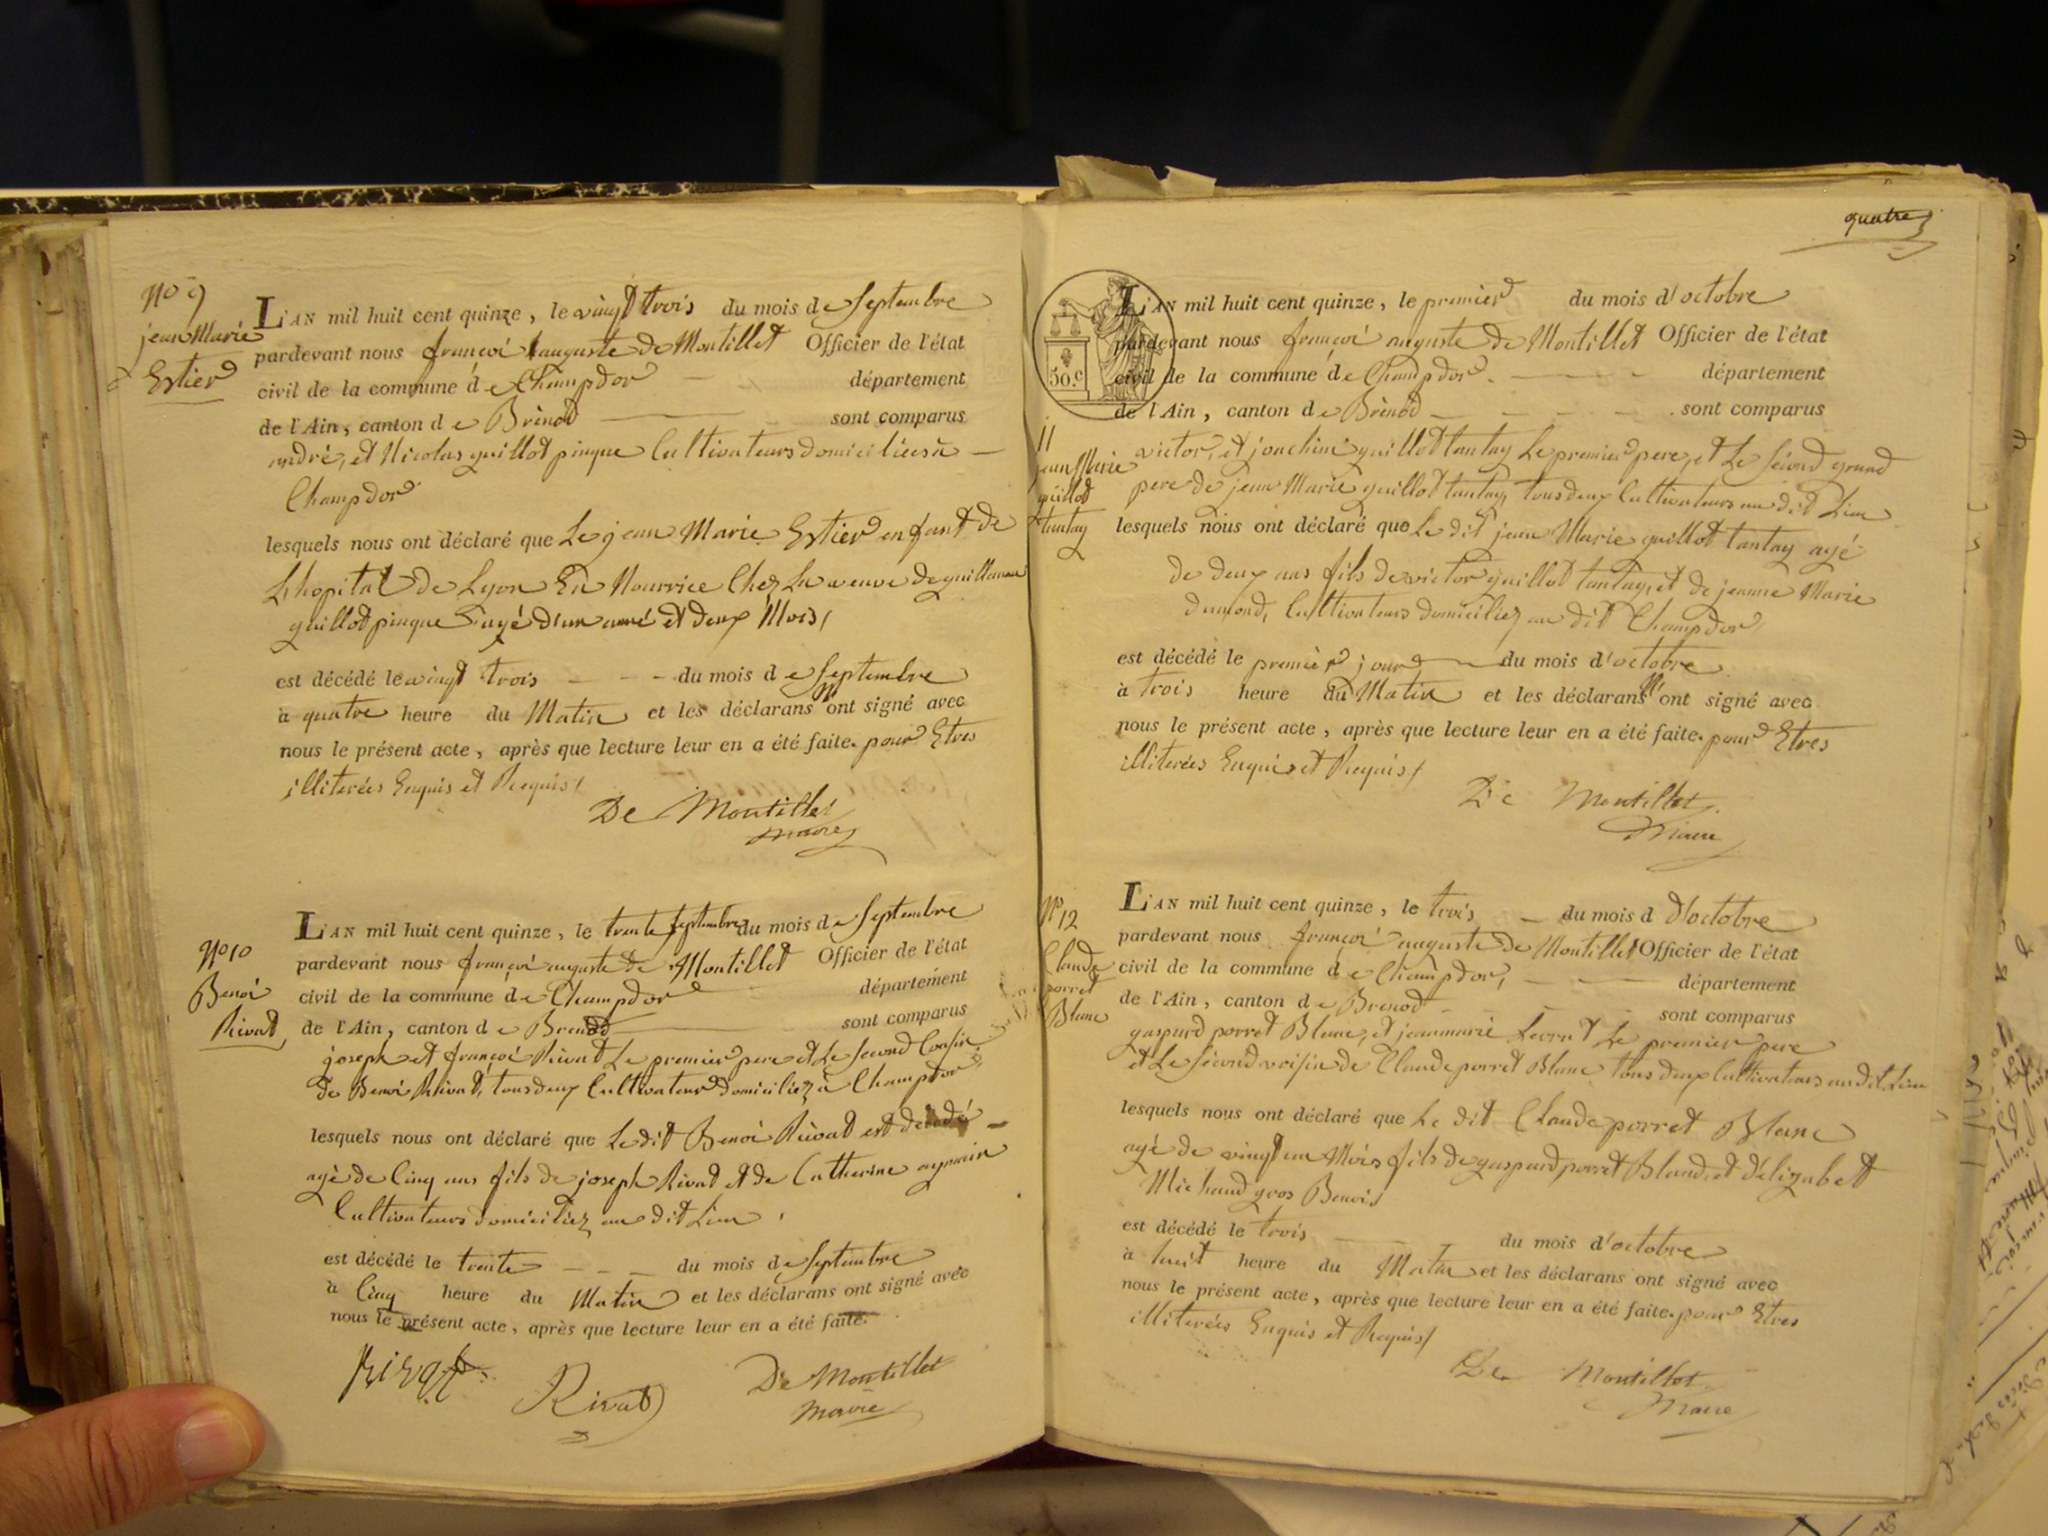 No 9
jean Marie
Estier
L'AN mil huit cent quinze, le vingt trois du mois de Septembre
pardevant nous françoi auguste de Montillet Officier de l'état
civil de la commune de Champdor département
de l'Ain, canton de Brénod sont comparus
andré, et Nicolas guillot pinque Cultivateurs domiciliés à
Champdor
lesquels nous ont déclaré que Le jean Marie Estier enfant de
Lhopital de Lyon En Nourrice Chez La veuve de guillaume
guillot pinque agé d'un anné et deux Mois
est décédé le vingt trois du mois de Septembre
à quatre heure du Matin et les déclarans n'ont signé avec
nous le présent acte, après que lecture leur en a été faite. pour Etres
illiterés Enquis et Requis
De Montillet
maire
No 10
Benoi
Rivat
L'AN mil huit cent quinze, le trente septembre du mois de Septembre
pardevant nous françoi auguste de Montillet Officier de l'état
civil de la commune de Champdor département
de l'Ain, canton de Brenod sont comparus
joseph et françoi Rivat Le premier pere et Le second Cousin
de Benoi Rivat, tous deux Cultivateur domiciliez à Champdor
lesquels nous ont déclaré que Le dit Benoi Rivat est décédé
agé de Cinq ans fils de joseph Rivat et de Catherine aymain
Cultivateurs domiciliez au dit Lieu
est décédé le trente du mois de Septembre
à Cinq heure du Matin et les déclarans ont signé avec
nous le présent acte, après que lecture leur en a été faite.
Rivat
Rivat
De Montillet
maire
quatre
50.c
11
jean Marie
guillot
tantay
L'AN mil huit cent quinze, le premier du mois d'octobre
pardevant nous françoi auguste de Montillet Officier de l'état
civil de la commune de Champdor département
de l'Ain, canton de Brénod sont comparus
victor, et joachim guillot tantay Le premier pere, et Le sécond grand
pere de jean Marie guillot tantay, tous deux Cultivateurs au dit Lieu
lesquels nous ont déclaré que Le dit jean Marie guillot tantay agé
de deux ans fils de victor guillot tantay, et de jeanne Marie
dumond, Cultivateurs domiciliez au dit Champdor
est décédé le premier jour du mois d'octobre
à trois heure du Matin et les déclarans n'ont signé avec
nous le présent acte, après que lecture leur en a été faite. pour Etres
illiterés Enquis et Requis
De Montillet
Maire
No 12
Claude
porret
Blanc
L'AN mil huit cent quinze, le trois du mois d d'octobre
pardevant nous françoi auguste de Montillet Officier de l'état
civil de la commune de Champdor, département
de l'Ain, canton de Brenod sont comparus
gaspard porret Blanc, et jeanmarie Le premier pere
et Le sécond voisin de Claude porret Blanc tous deux Cultivateurs au dit Lieu
lesquels nous ont déclaré que Le dit Claude porret Blanc
agé de vingt un Mois fils de gaspard porret Bland, et d'élizabett
Michaud gros Benoi
est décédé le trois du mois d'octobre
à huit heure du Matin et les déclarans ont signé avec
nous le présent acte, après que lecture leur en a été faite. pour Etres
illiterés Enquis et Requis
De Montillet
Maire